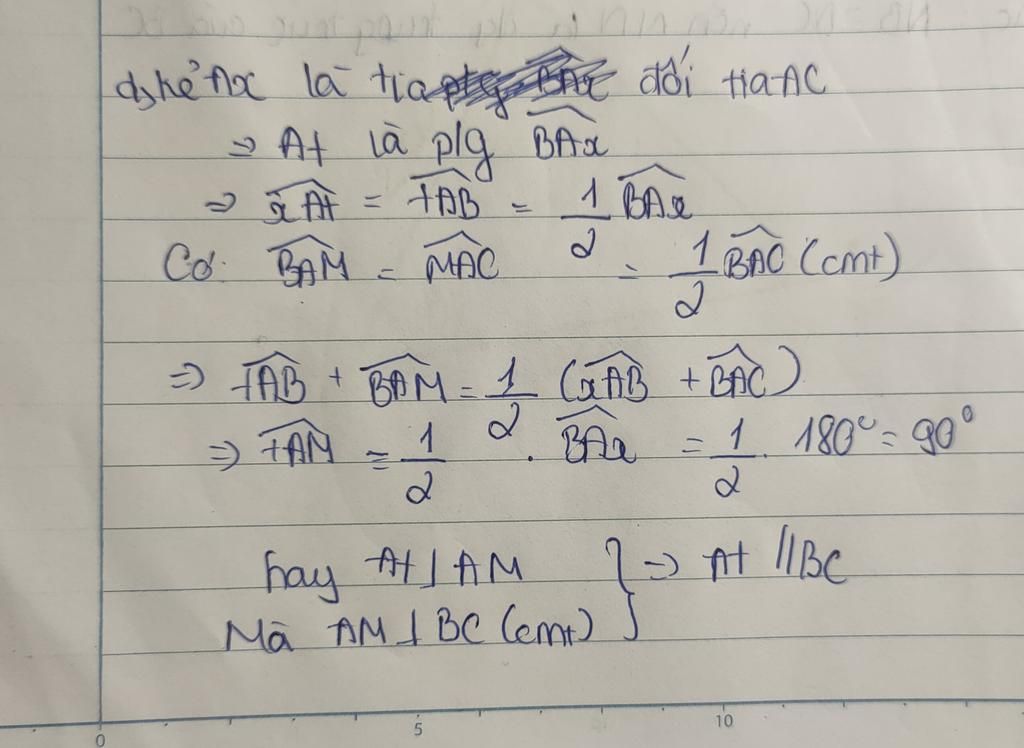 d, kẻ Ax là tia đối tia AC
=> At là p/g BAx
=> xAt = tAB = 1/2 BAx
Có: BAM = MAC = 1/2 BAC (cmt)
=> tAB + BAM = 1/2 (xAB + BAC)
=> tAM = 1/2 . BAx = 1/2 . 180° = 90°
hay At ⊥ AM } => At // BC
Mà AM ⊥ BC (cmt)
0 5 10